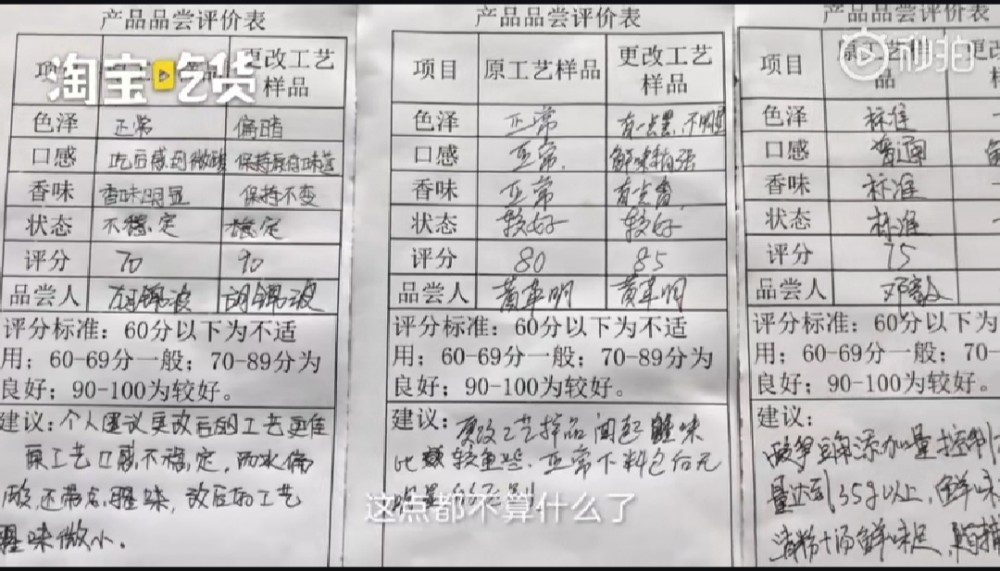 产品品尝评价表
项目 更改工艺样品
色泽 正常 偏暗
口感 吃后感到微酸 保持原有味道
香味 香味明显 保持不变
状态 不稳定 稳定
评分 70 90
品尝人 胡锦波 胡锦波
评分标准：60分以下为不适
用；60-69分一般；70-89分为
良好；90-100为较好。
建议：个人建议更改后的工艺更佳
原工艺口感不稳定，而水偏
酸，还带点腥味，改后的工艺
腥味微小.
产品品尝评价表
项目 原工艺样品 更改工艺样品
色泽 正常 有一点黑,不明显
口感 正常. 鲜味稍强
香味 正常
状态 较好 较好
评分 80 85
品尝人 黄革明 黄革明
评分标准：60分以下为不适
用；60-69分一般；70-89分为
良好；90-100为较好。
建议： 更改工艺样品闻起腥味
比较 些. 正常下料包后无
产品品尝评价表
项目 原工艺样品 更
色泽 标准
口感 普通
香味 标准
状态 标准
评分 75
品尝人
评分标准：60分以下为
用；60-69分一般；70-
良好；90-100为较好。
建议：
添加量控制
量达到35g以上，鲜味
汤鲜味足，
淘宝吃货
秒拍
这点都不算什么了